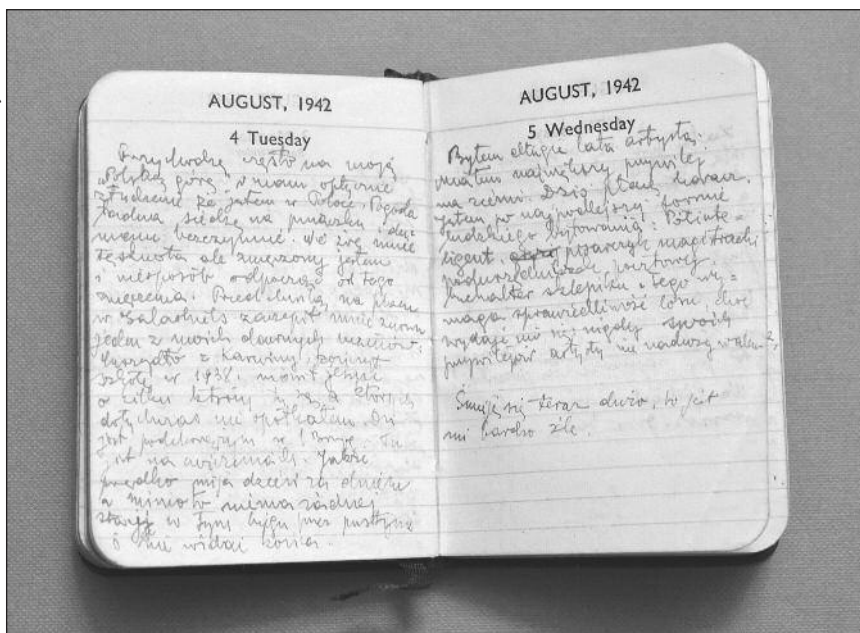 AUGUST, 1942
4 Tuesday
Przychodzę często na moją
"Polską górę" i mam optyczne
złudzenie że jestem w Polsce. Pogoda
ładna siedzę na pniaczku i du-
mam bezczynnie. We śnie mnie
tęsknota ale zmęczony jestem
i niesposób odpocząć od tego
zmęczenia. Przed chwilką na placu
w Galashiels zaczepił mnie znowu
jeden z moich dawnych uczniów:
z Karwiny, kończył
szkołę w 1938. mówił jeszcze
o kilku którzy tu są a których
dotychczas nie spotkałem. On
jest podchorążym w
jest na ćwiczeniach. Jakże
prędko mija dzień za dniem
a mimo to niema żadnej
w tym biegu przez pustynię
i nie widać końca.
AUGUST, 1942
5 Wednesday
Byłem długie lata artystą:
miałem największy przywilej
na ziemi. Dziś płacę haracz.
jestem w najpodlejszej formie
ludzkiego bytowania: Półinte=
ligent, pisarczyk magistracki
podurzędniczek pocztowy,
buchalter sklepiku. Tego wy=
maga sprawiedliwość losu, choć
wydaje mi się nigdy swoich
przywilejów artysty nie nadużywałem
Śmieję się teraz dużo, to jest
mi bardzo źle.